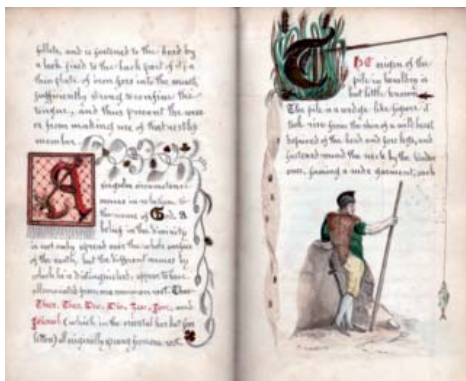 fillets, and is fastened to the head by
a lock fixed to the back part of it; a
thin plate of iron goes into the mouth
sufficiently strong to confine the
tongue, and thus prevent the wear
er from making use of that restless
member.
A
singular circumstance
occurs in relation to
the name of God. A
belief in the divinity
is not only spread over the whole surface
of the earth, but the different names by
which he is distinguished, appear to have
all emanated from one common root.
and
(which in the oriental has but four
letters) all originally sprung from one root.
THE origin of the
pile in heraldry is
but little known
The pile is a wedge like figure &
took rise from the skin of a wild beast
deprived of the head and fore legs, and
fastened round the neck by the hinder
ones, forming a rude garment, such